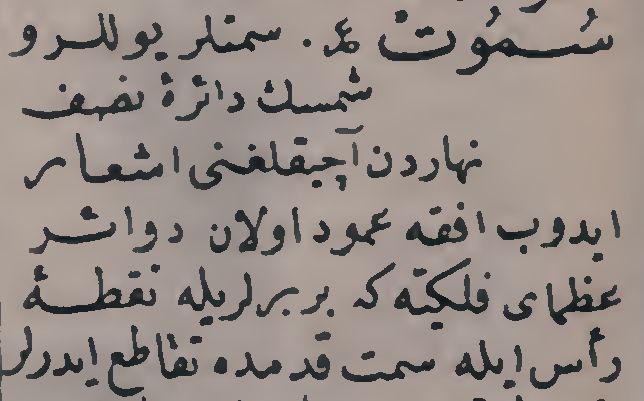 سُمُوت ع. سمتلر یوللر و
شمسك دائرۀ نصف
نهاردن آچیقلغنی اشعار
ایدوب افقه عمود اولان دوائر
عظمای فلکیّه که بربرلریله نقطۀ
رأس ایله سمت قدمده تقاطع ایدرلر